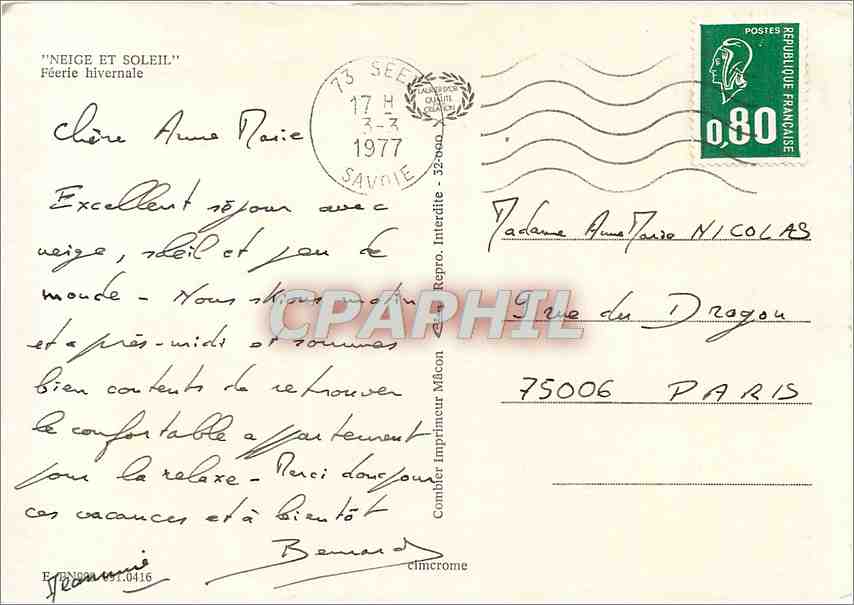 "NEIGE ET SOLEIL"
Féerie hivernale
Chère Anne Marie
Excellent séjour avec
neige, soleil et peu de
monde - Nous skions matin
et après-midi et sommes
bien contents de retrouver
le confortable appartement
pour la relaxe - Merci donc pour
ces vacances et à bientôt
Bernard
Jeannine
E. 091.0416
cimcrome
Combier Imprimeur Mâcon Repro. Interdite - 32.000
73 SEEZ
17 H
3-3
1977
SAVOIE
LAURIER D'OR
QUALITÉ
CRÉATION
POSTES
REPUBLIQUE FRANÇAISE
0,80
Madame Anne Marie NICOLAS
9 rue du Dragon
75006 PARIS
CPAPHIL